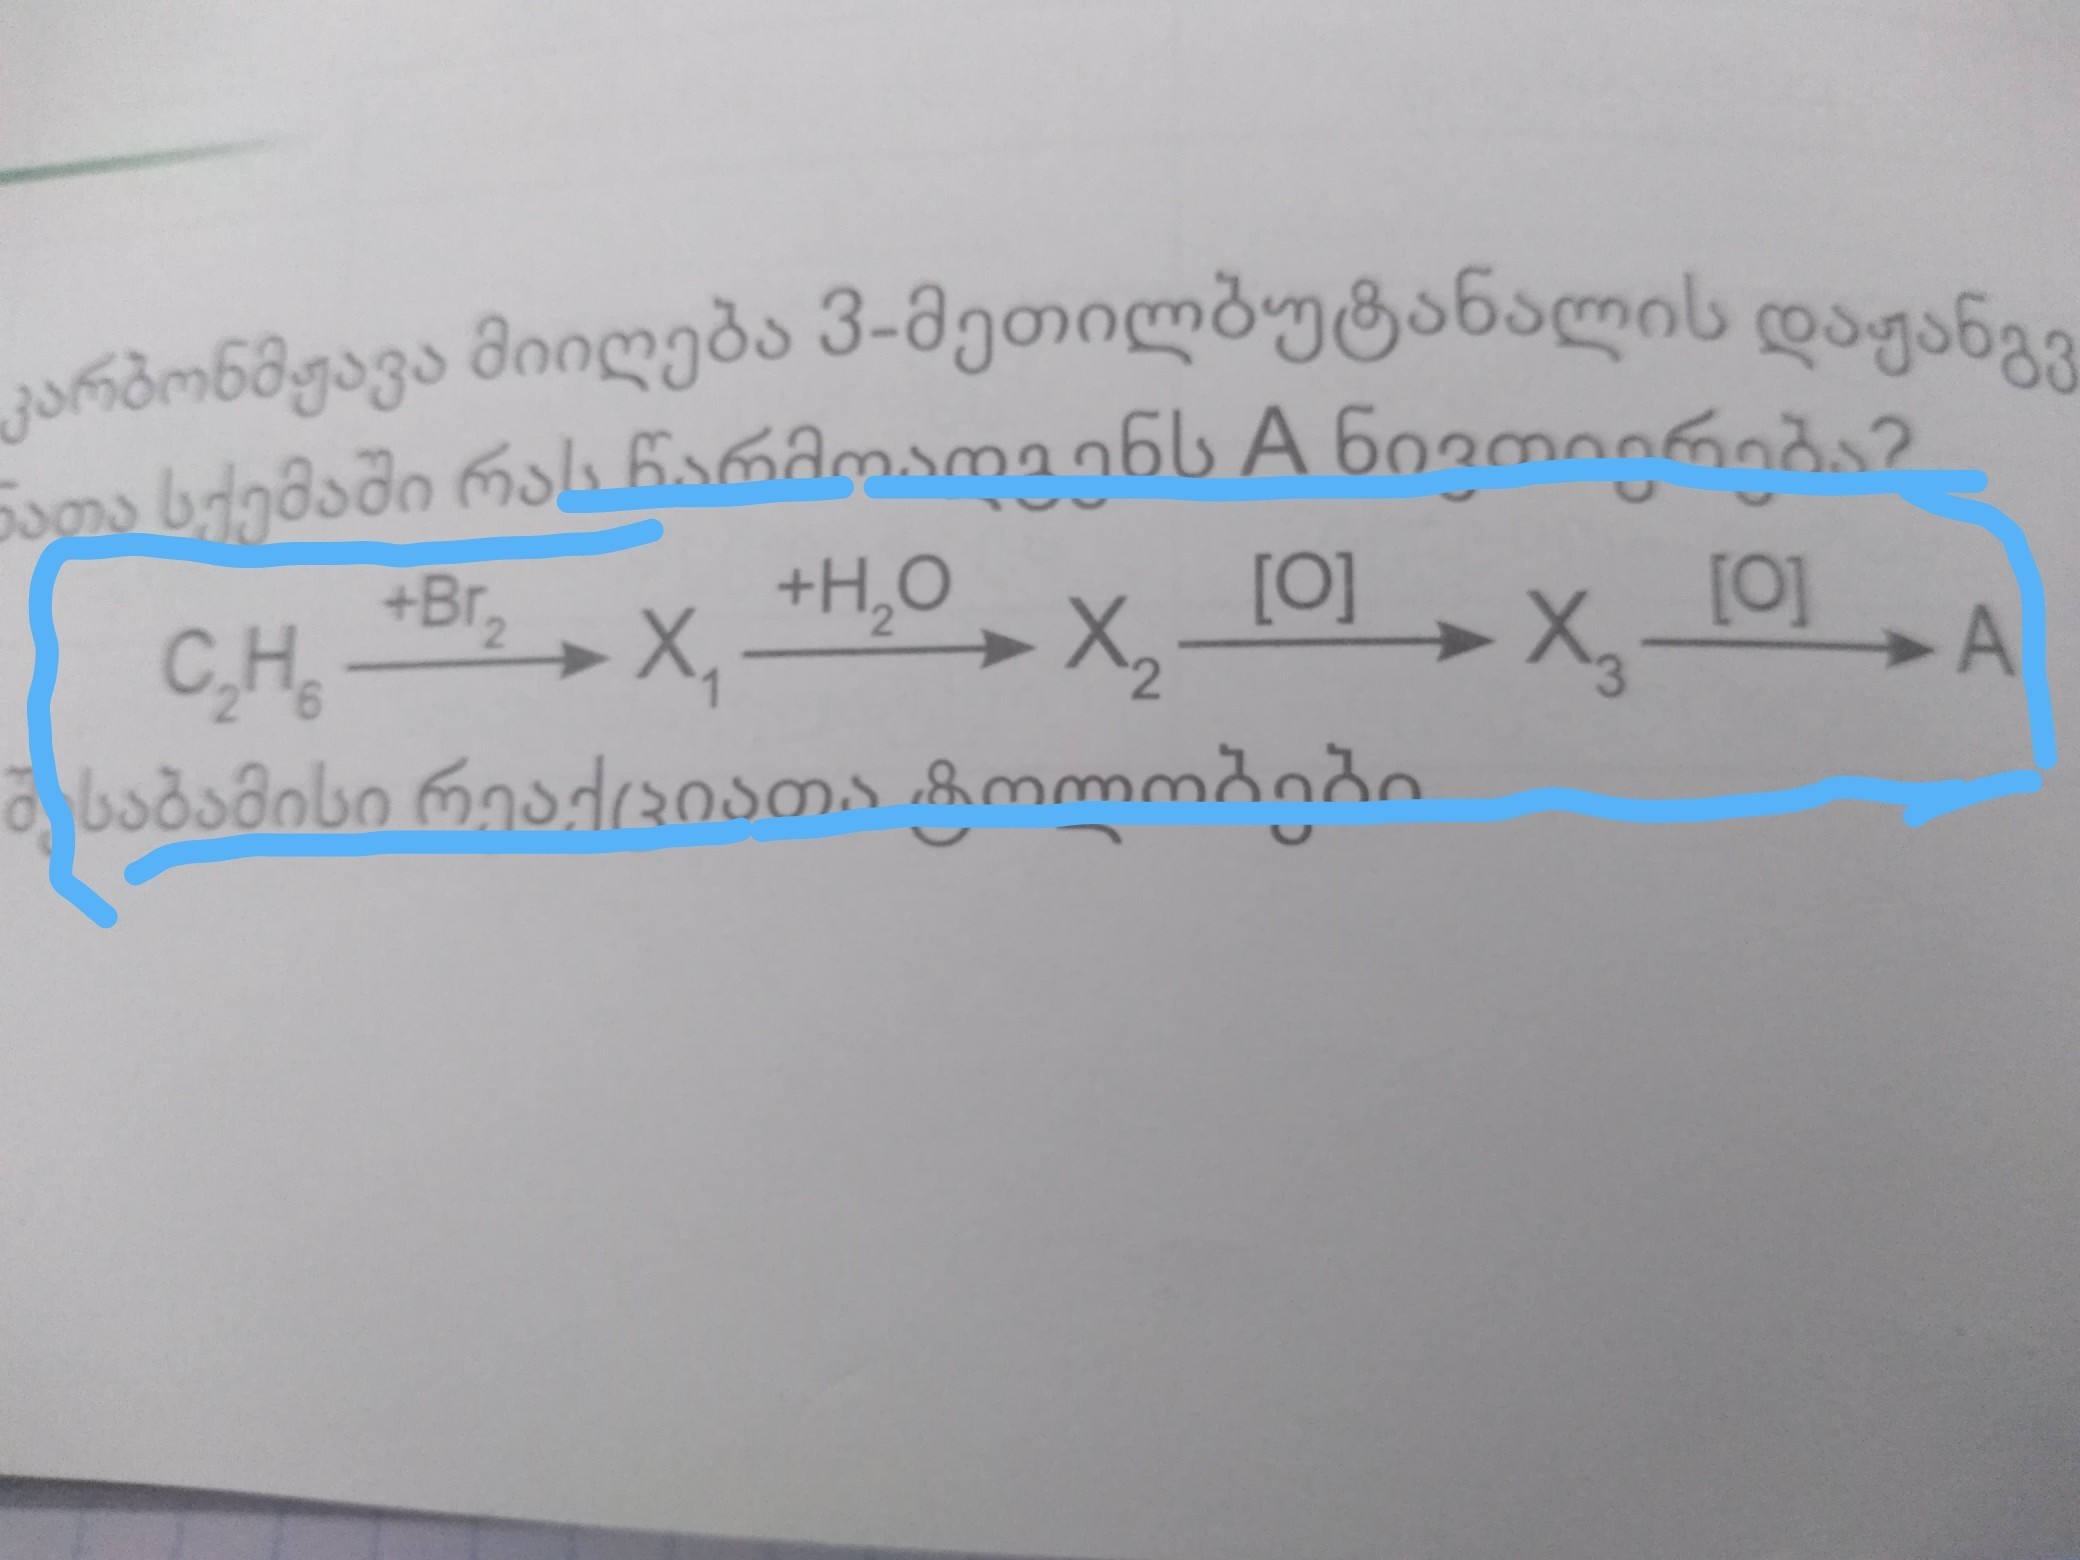 კარბონმჟავა მიიღება 3-მეთილბუტანალის დაჟანგვ
ნათა სქემაში რას წარმოადგენს A ნივთიერება?
C₂H₆ +Br₂ → X₁ +H₂O → X₂ [O] → X₃ [O] → A
შესაბამისი რეაქციათა ტოლობები